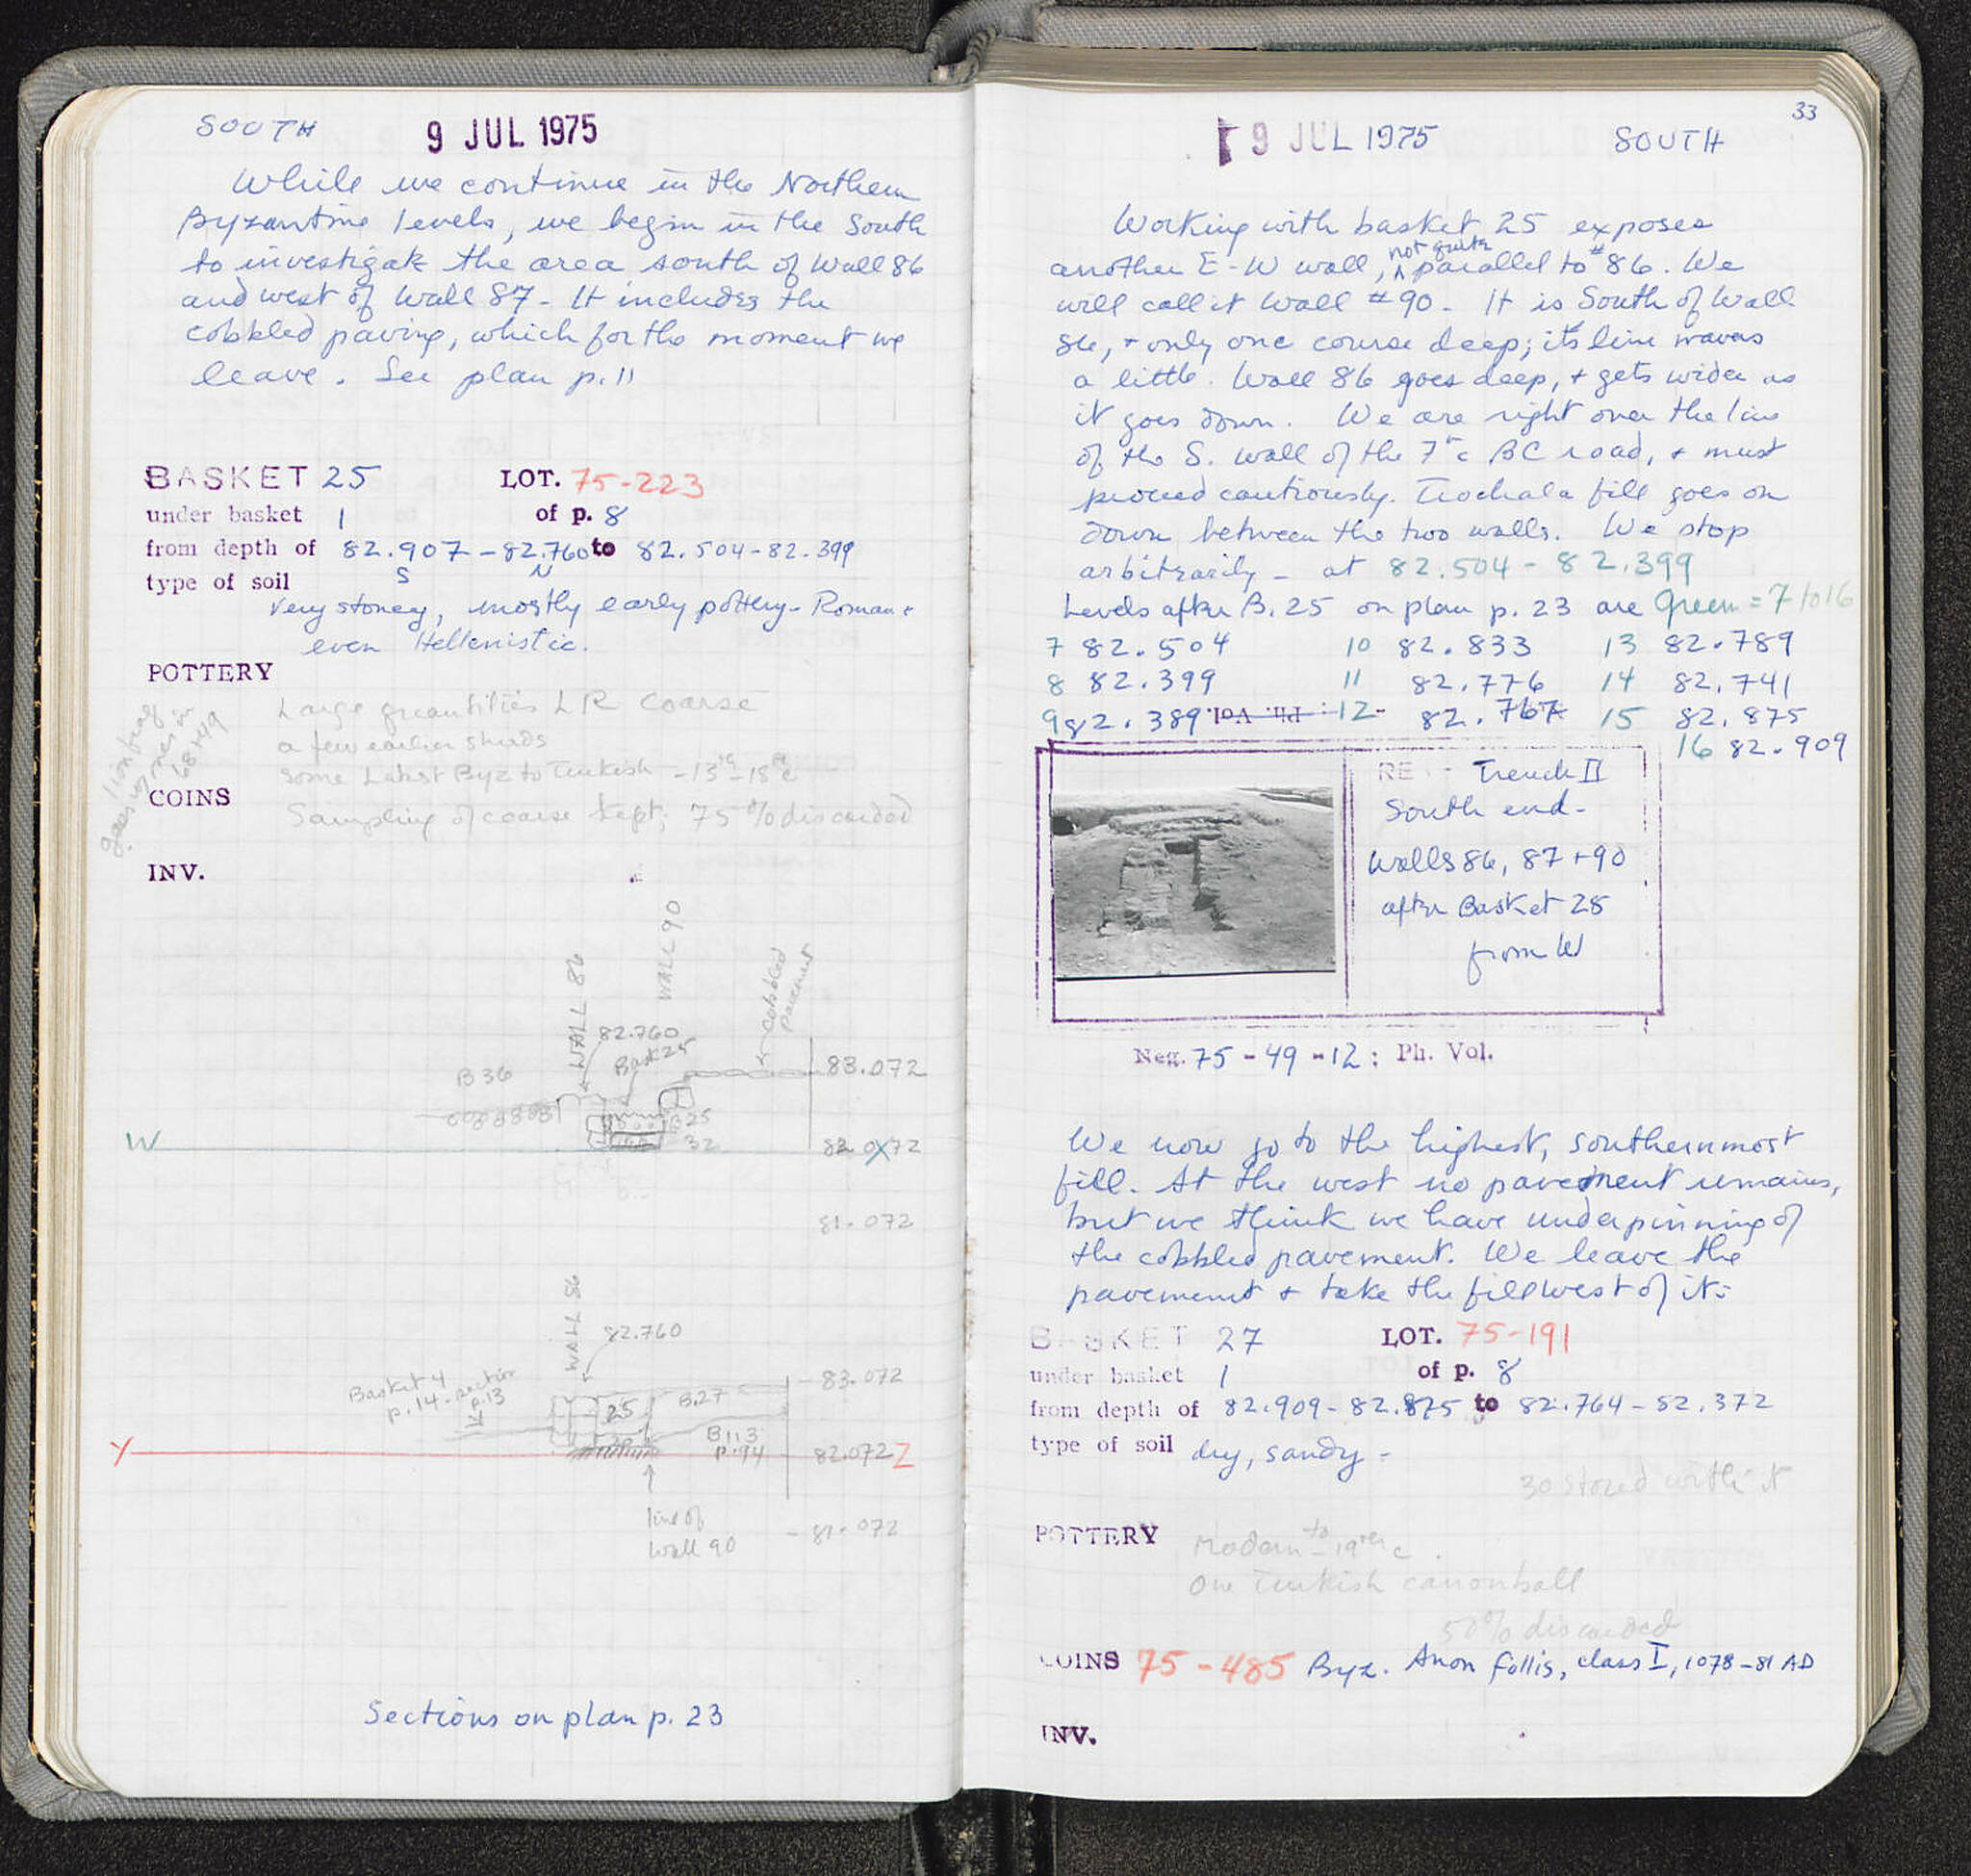 SOUTH 9 JUL 1975
While we continue in the Northern
Byzantine levels, we begin in the South
to investigate the area south of Wall 86
and west of Wall 87 - It includes the
cobbled paving, which for the moment we
leave. See plan p. 11
BASKET 25 LOT. 75-223
under basket 1 of p. 8
from depth of 82.907 - 82.760 to 82.504 - 82.399
S N
type of soil
very stoney, mostly early pottery - Roman +
even Hellenistic.
POTTERY
Large quantities LR coarse
a few earlier sherds
some Latest Byz to Turkish - 13th - 18th c
COINS
Sampling of coarse kept; 75% discarded
goes in
68+49
INV.
WALL 86
WALL 90
cobbled
pavement
82.760
Bask 25
B 36
83.072
B25
32
W
82.072
81.072
WALL 86
82.760
Basket 4
p. 14 - section
p. 13
83.072
25
B.27
B113
p. 94
Y 82.072 Z
line of
Wall 90
81.072
Sections on plan p. 23
33
9 JUL 1975 SOUTH
Working with basket 25 exposes
not quite
another E-W wall, ^ parallel to #86. We
will call it Wall #90. It is South of Wall
86, + only one course deep; its line wavers
a little. Wall 86 goes deep, + gets wider as
it goes down. We are right over the line
of the S. wall of the 7th c BC road, + must
proceed cautiously. Trochala fill goes on
down between the two walls. We stop
arbitrarily - at 82.504 - 82.399
Levels after B. 25 on plan p. 23 are Green = 7 to 16
7 82.504 10 82.833 13 82.789
8 82.399 11 82.776 14 82.741
9 82.389 Ph. Vol. 12 82.767 15 82.875
16 82.909
RE Trench II
South end -
Walls 86, 87 + 90
after Basket 25
from W
Neg. 75 - 49 - 12 : Ph. Vol.
We now go to the highest, southernmost
fill. At the west no pavement remains,
but we think we have underpinning of
the cobbled pavement. We leave the
pavement + take the fill west of it:
BASKET 27 LOT. 75-191
under basket 1 of p. 8
from depth of 82.909 - 82.875 to 82.764 - 82.372
type of soil dry, sandy -
30 stored with it
POTTERY Modern - to 19th c.
One Turkish canonball
50% discarded
COINS 75-485 Byz. Anon follis, class I, 1078-81 AD
INV.